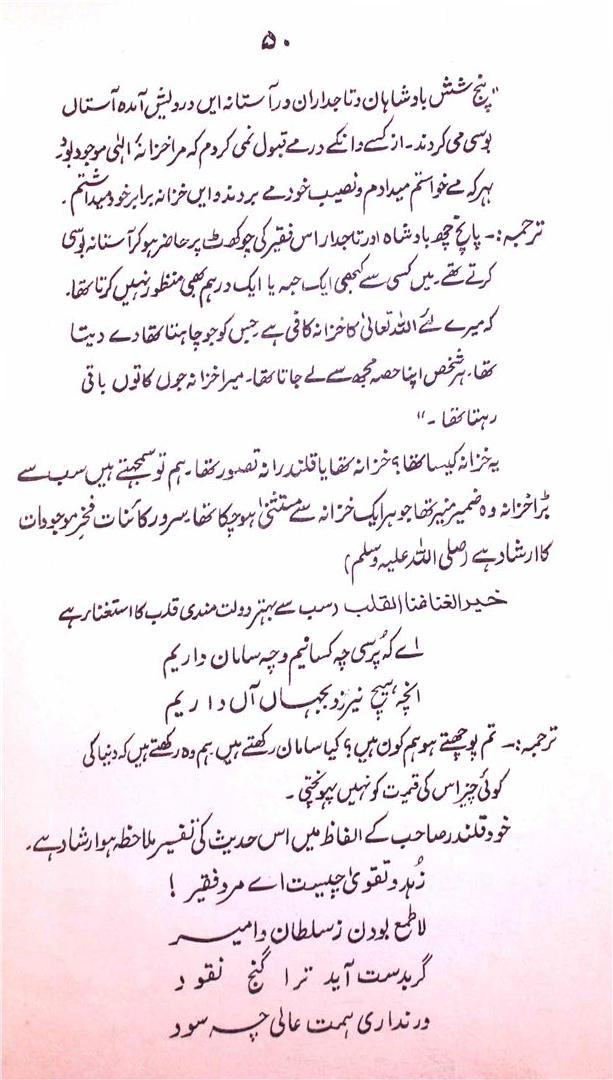 ۵۰
"پنج شش بادشاہان و تاجداران در آستانہ ایں درویش آمدہ آستاں
بوسی می کردند۔ از کسے دانکے درمے قبول نمی کردم کہ مرا خزانۂ الٰہی موجود بود۔
بہر کہ مے خواستم میدادم و نصیب خود مے بردند و ایں خزانہ برابر خود میداشتم۔
ترجمہ:۔ پانچ چھ بادشاہ اور تاجدار اس فقیر کی چوکھٹ پر حاضر ہو کر آستانہ بوسی
کرتے تھے۔ میں کسی سے کبھی ایک حبہ یا ایک درہم بھی منظور نہیں کرتا تھا۔
کہ میرے لئے اللہ تعالیٰ کا خزانہ کافی ہے۔ جس کو جو چاہتا تھا دے دیتا
تھا۔ ہر شخص اپنا حصہ مجھ سے لے جاتا تھا۔ میرا خزانہ جوں کا توں باقی
رہتا تھا۔"
یہ خزانہ کیسا تھا؟ خزانہ تھا یا قلندرانہ تصور تھا۔ ہم تو سمجھتے ہیں سب سے
بڑا خزانہ وہ ضمیر منیر تھا جو ہر ایک خزانہ سے مستثنیٰ ہو چکا تھا۔ سرور کائنات فخر موجودات
کا ارشاد ہے (صلی اللہ علیہ وسلم)
خیر الغنا غنا القلب (سب سے بہتر دولت مندی قلب کا استغناء ہے
اے کہ پُرسی چہ کسانیم و چہ ساماں داریم
انچہ ہیچ نیرزد بجہاں آں داریم
ترجمہ:۔ تم پوچھتے ہو ہم کون ہیں؟ کیا سامان رکھتے ہیں ہم وہ رکھتے ہیں کہ دنیا کی
کوئی چیز اس کی قیمت کو نہیں پہونچتی۔
خود قلندر صاحب کے الفاظ میں اس حدیث کی تفسیر ملاحظہ ہو ارشاد ہے۔
زُہد و تقویٰ چیست اے مرد فقیر!
لاطمع بودن ز سلطان و امیر
گر بدست آید ترا گنج نقود
ور نداری ہمت عالی چہ سود